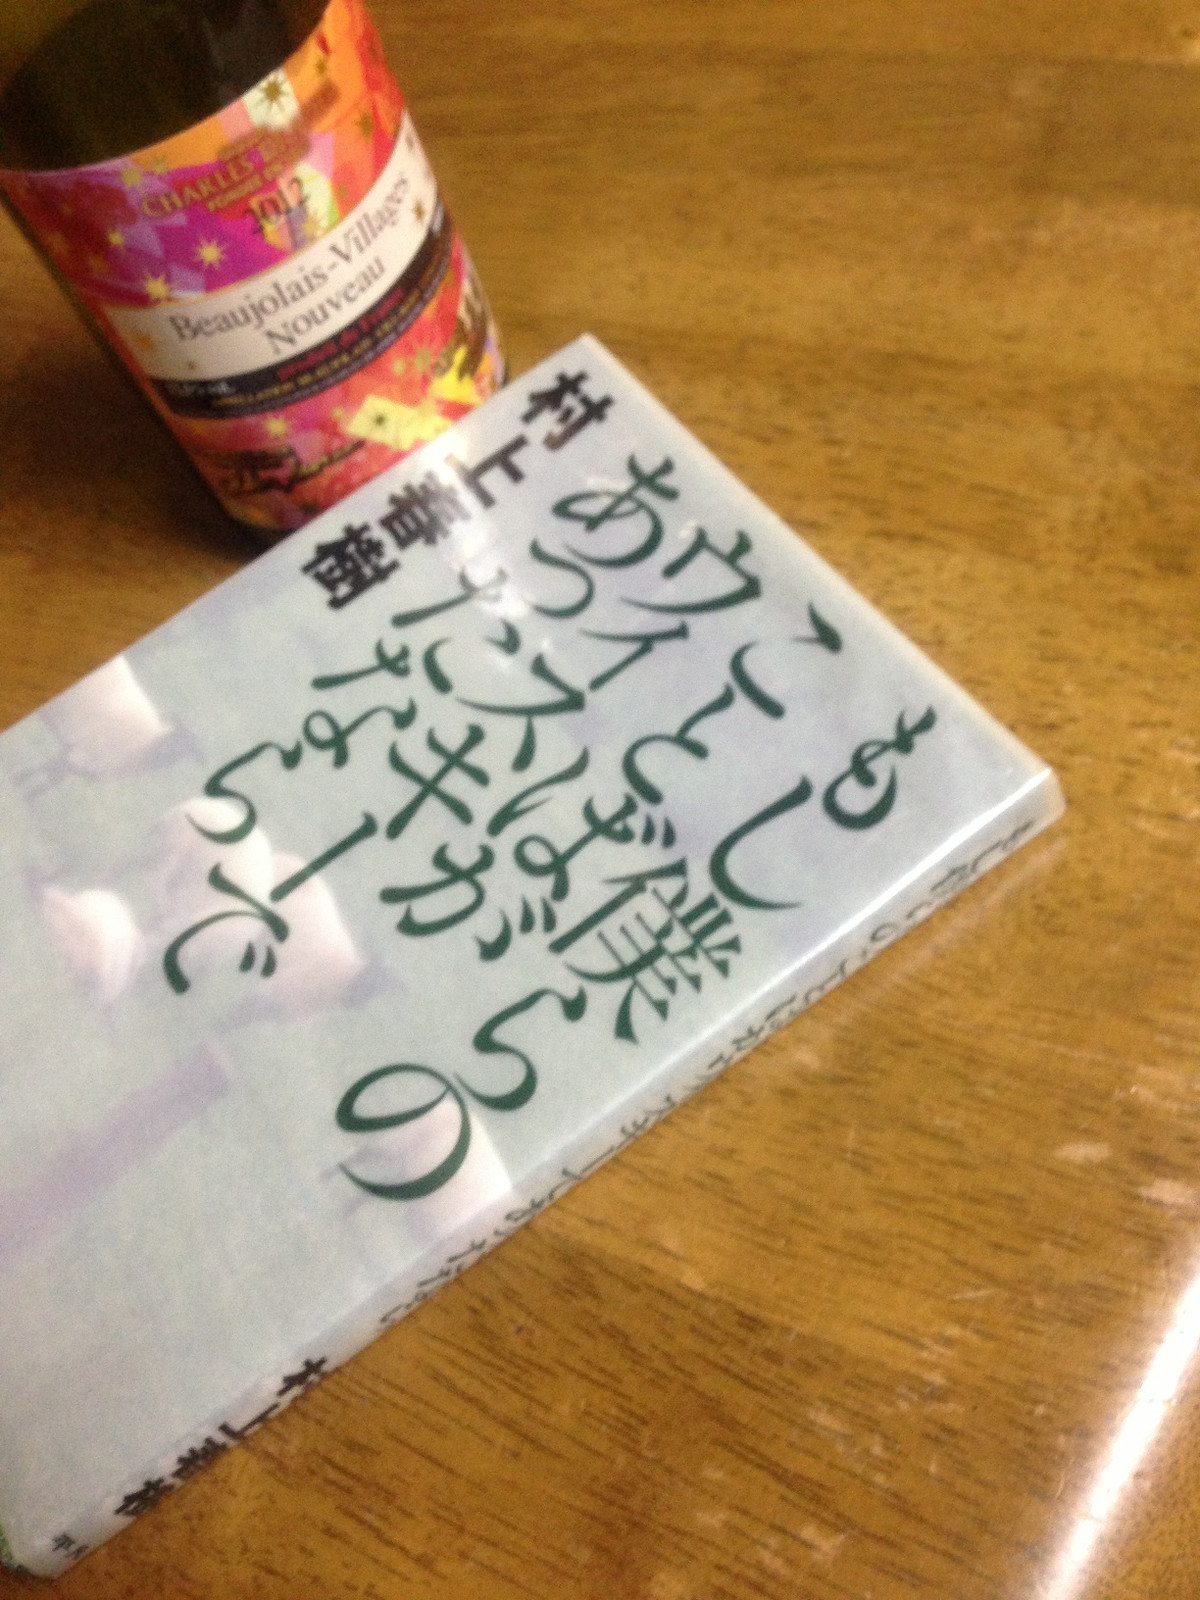 CHARLES
2012
Beaujolais-Villages
Nouveau
もし僕らの
ことばが
ウィスキーで
あったなら
村上春樹
もし僕らのことばがウィスキーであったなら
村上春樹